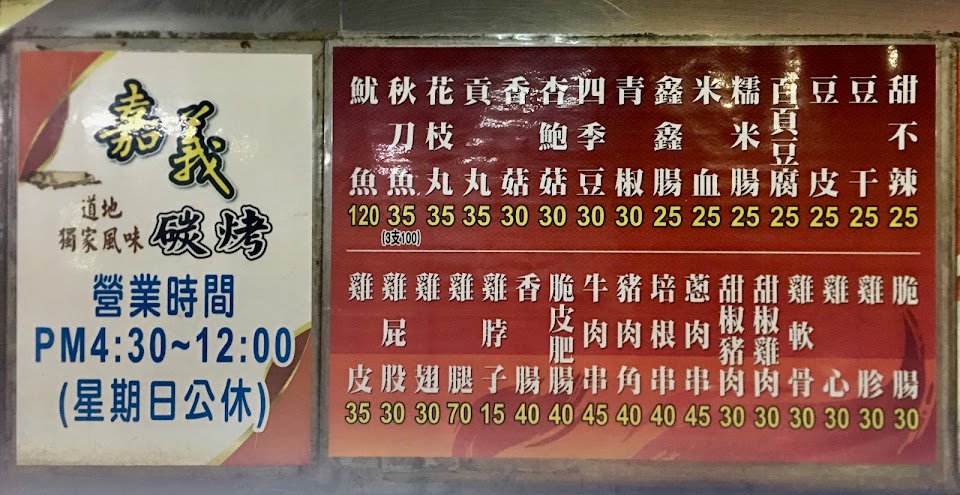 嘉義
道地
獨家風味
碳烤
營業時間
PM4:30~12:00
(星期日公休)
魷魚 120
秋刀魚 35 (3支100)
花枝丸 35
貢丸 35
香菇 30
杏鮑菇 30
四季豆 30
青椒 30
鑫鑫腸 25
米血 25
糯米腸 25
百頁豆腐 25
豆皮 25
豆干 25
甜不辣 25
雞皮 35
雞屁股 30
雞翅 30
雞腿 70
雞脖子 15
香腸 40
脆皮肥腸 40
牛肉串 45
豬肉角 40
培根串 40
蔥肉串 45
甜椒豬肉 30
甜椒雞肉 30
雞軟骨 30
雞心 30
雞胗 30
脆腸 30